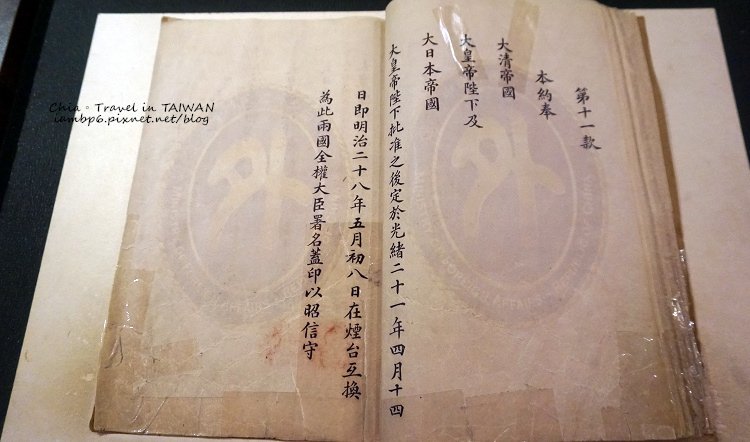 第十一款
本約奉
大清帝國
大皇帝陛下及
大日本帝國
大皇帝陛下批准之後定於光緒二十一年四月十四
日即明治二十八年五月初八日在煙台互換
為此兩國全權大臣署名蓋印以昭信守
Chia。Travel in TAIWAN
iambp6.pixnet.net/blog